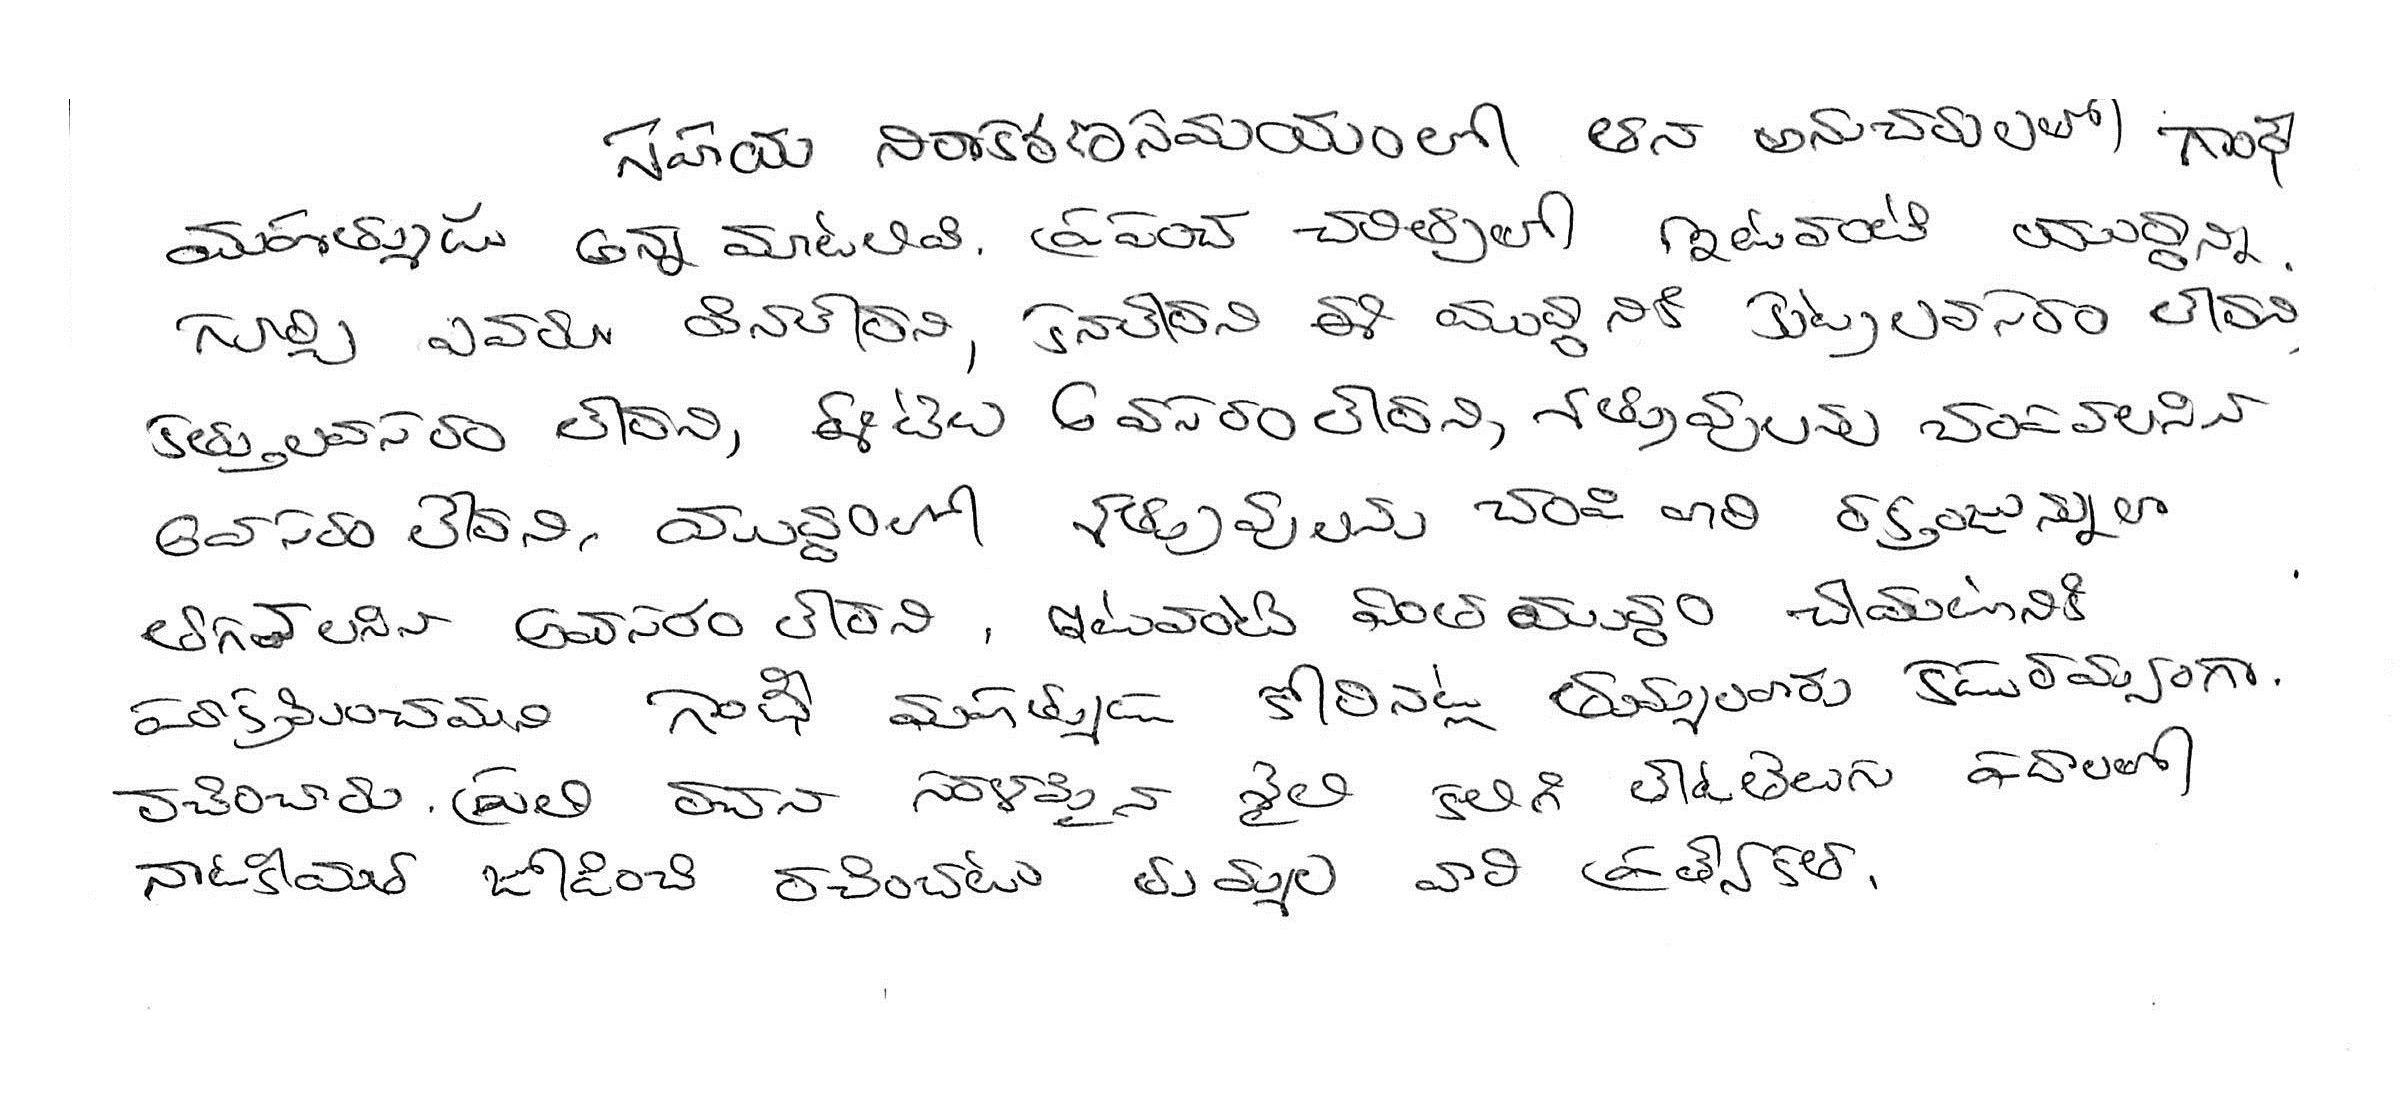 సహాయ నిరాకరణ సమయంలో తన అనుచరులలో గాంధీ
మహాత్ముడు అన్న మాటలివి. ప్రపంచ చరిత్రలో ఇటువంటి యుద్ధాన్ని
గూర్చి ఎవరూ వినలేదని, కనలేదని ఈ యుద్ధానికి కుట్రలవసరం లేదని,
కత్తులవసరం లేదని, ఈటెల అవసరం లేదని, శత్రువులను చంపవలసిన
అవసరం లేదని, యుద్ధంలో శత్రువులను చంపి వారి రక్తం జున్నులా
తాగవలసిన అవసరం లేదని, ఇటువంటి వింత యుద్ధం చేయటానికి
పరాక్రమించమని గాంధీ మహాత్ముడు కోరినట్లు తుమ్మలవారు కడురమ్యంగా.
రచించారు. ప్రతి రచన సరళమైన శైలి కలిగి తేటతెలుగు పదాలలో
నాటకీయత జోడించి రచించటం తుమ్మల వారి ప్రత్యేకత.